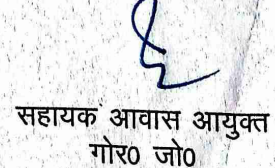 सहायक आवास आयुक्त
गोर0 जो0